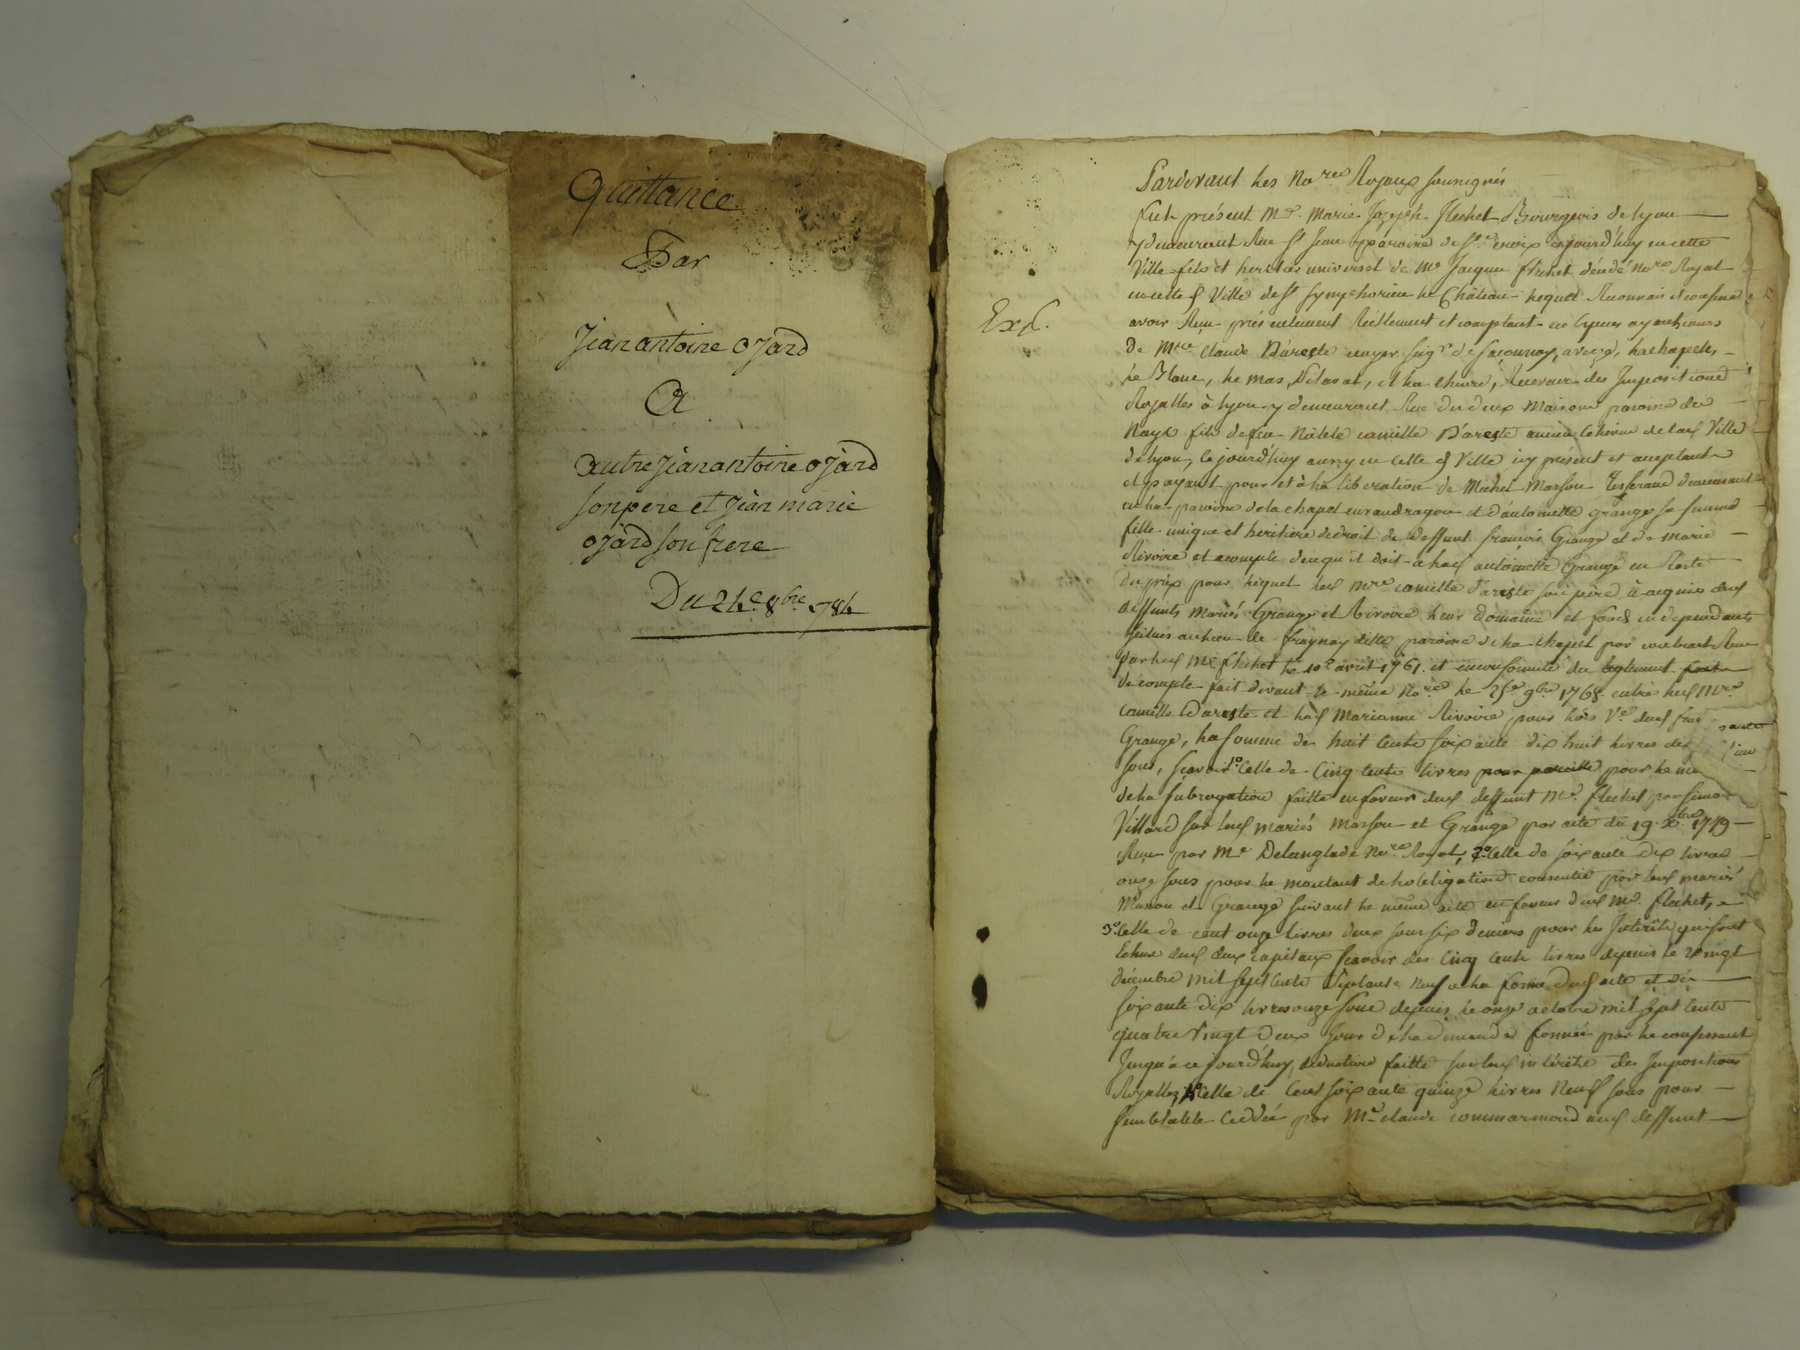 Quittance
Par
Jean antoine ojard
A
autre Jean antoine ojard
son pere et Jean marie
ojard son frere
Du 24e 8bre 784
Exp.
Pardevant les Nores Royaux soussignés
fut présent Me. Marie Jozeph flechet Bourgeois de lyon
y demeurant Rue St Jean paroisse de Ste croix cejourd'huy en cette
Ville fils et heritier universel de Me Jacques flechet décédé Nore Royal
en cette d Ville de St Symphorien le Château lequel Reconnais et confesse
avoir Reçu présentement Reellement et comptant en especes ayant cours
de Mre claude Dareste ecuyer seigr de saconnay, aveize, la chapelle,
le Blanc, le mas, Delavat, et la chevre, Receveur des Impositions
Royalles à lyon y demeurant Rue des deux Maisons paroisse de
Nays fils de feu Noble camille Dareste ancien Echevin de lad Ville
de lyon, ce jourd'huy aussy en cette d Ville icy présent et acceptant
et payant pour et à la liberation de Michel Masson Tisserand demeurant
en la paroisse de la chapel en vaudragon et d'antoinette grange sa femme
fille unique et heritiere de droit de deffunt francois Grange et de marie
Rivoire et acompte de ce qu'il doit a lad antoinette Grange en Reste
du prix pour lequel led Mre camille Dareste son père à acquis desd
deffunts mariés Grange et Rivoire leur domaine et fonds en dependants
situés au lieu de fraynay ditte paroisse de la chapel par contrat Reçu
par led Me flechet le 10e avril 1761. et en conformité du reglement fait
de compte fait devant le même nore le 25e 9bre 1768 entre led Mre
camille Dareste et lad Marianne Rivoire pour lors Ve dud fran
Grange, la somme de huit cents soixante dix huit livres de
sous, scavoir 1o Celle de Cinq cents livres pour pareille pour le
de la subrogation faitte en faveur dud deffunt Me. flechet par simon
Villard sur lesd mariés Masson et Grange par acte du 19. Xbre 1779
Reçu par Me Delanglade Nore Royal, 2o Celle de soixante dix livres
onze sous pour le montant de l'obligation consentie par lesd mariés
Masson et Grange suivant le même acte en faveur dud Me. flechet,
3o Celle de cent onze livres deux sous six deniers pour les Intérêts qui sont
Echeus desd deux capitaux scavoir des Cinq cents livres depuis le vingt
décembre mil sept cents septante neuf a la forme dud acte et des
soixante dix livres onze sous depuis le onze octobre mil sept cents
quatre Vingt deux Jour de la demande formée par le confessant
Jusqu'à ce jourd'huy, deduction faitte sur lesd intérêts des Impositions
Royalles, 4o Celle de Cent soixante quinze livres Neuf sous pour
semblable Cedée par Me claude commarmond aud deffunt